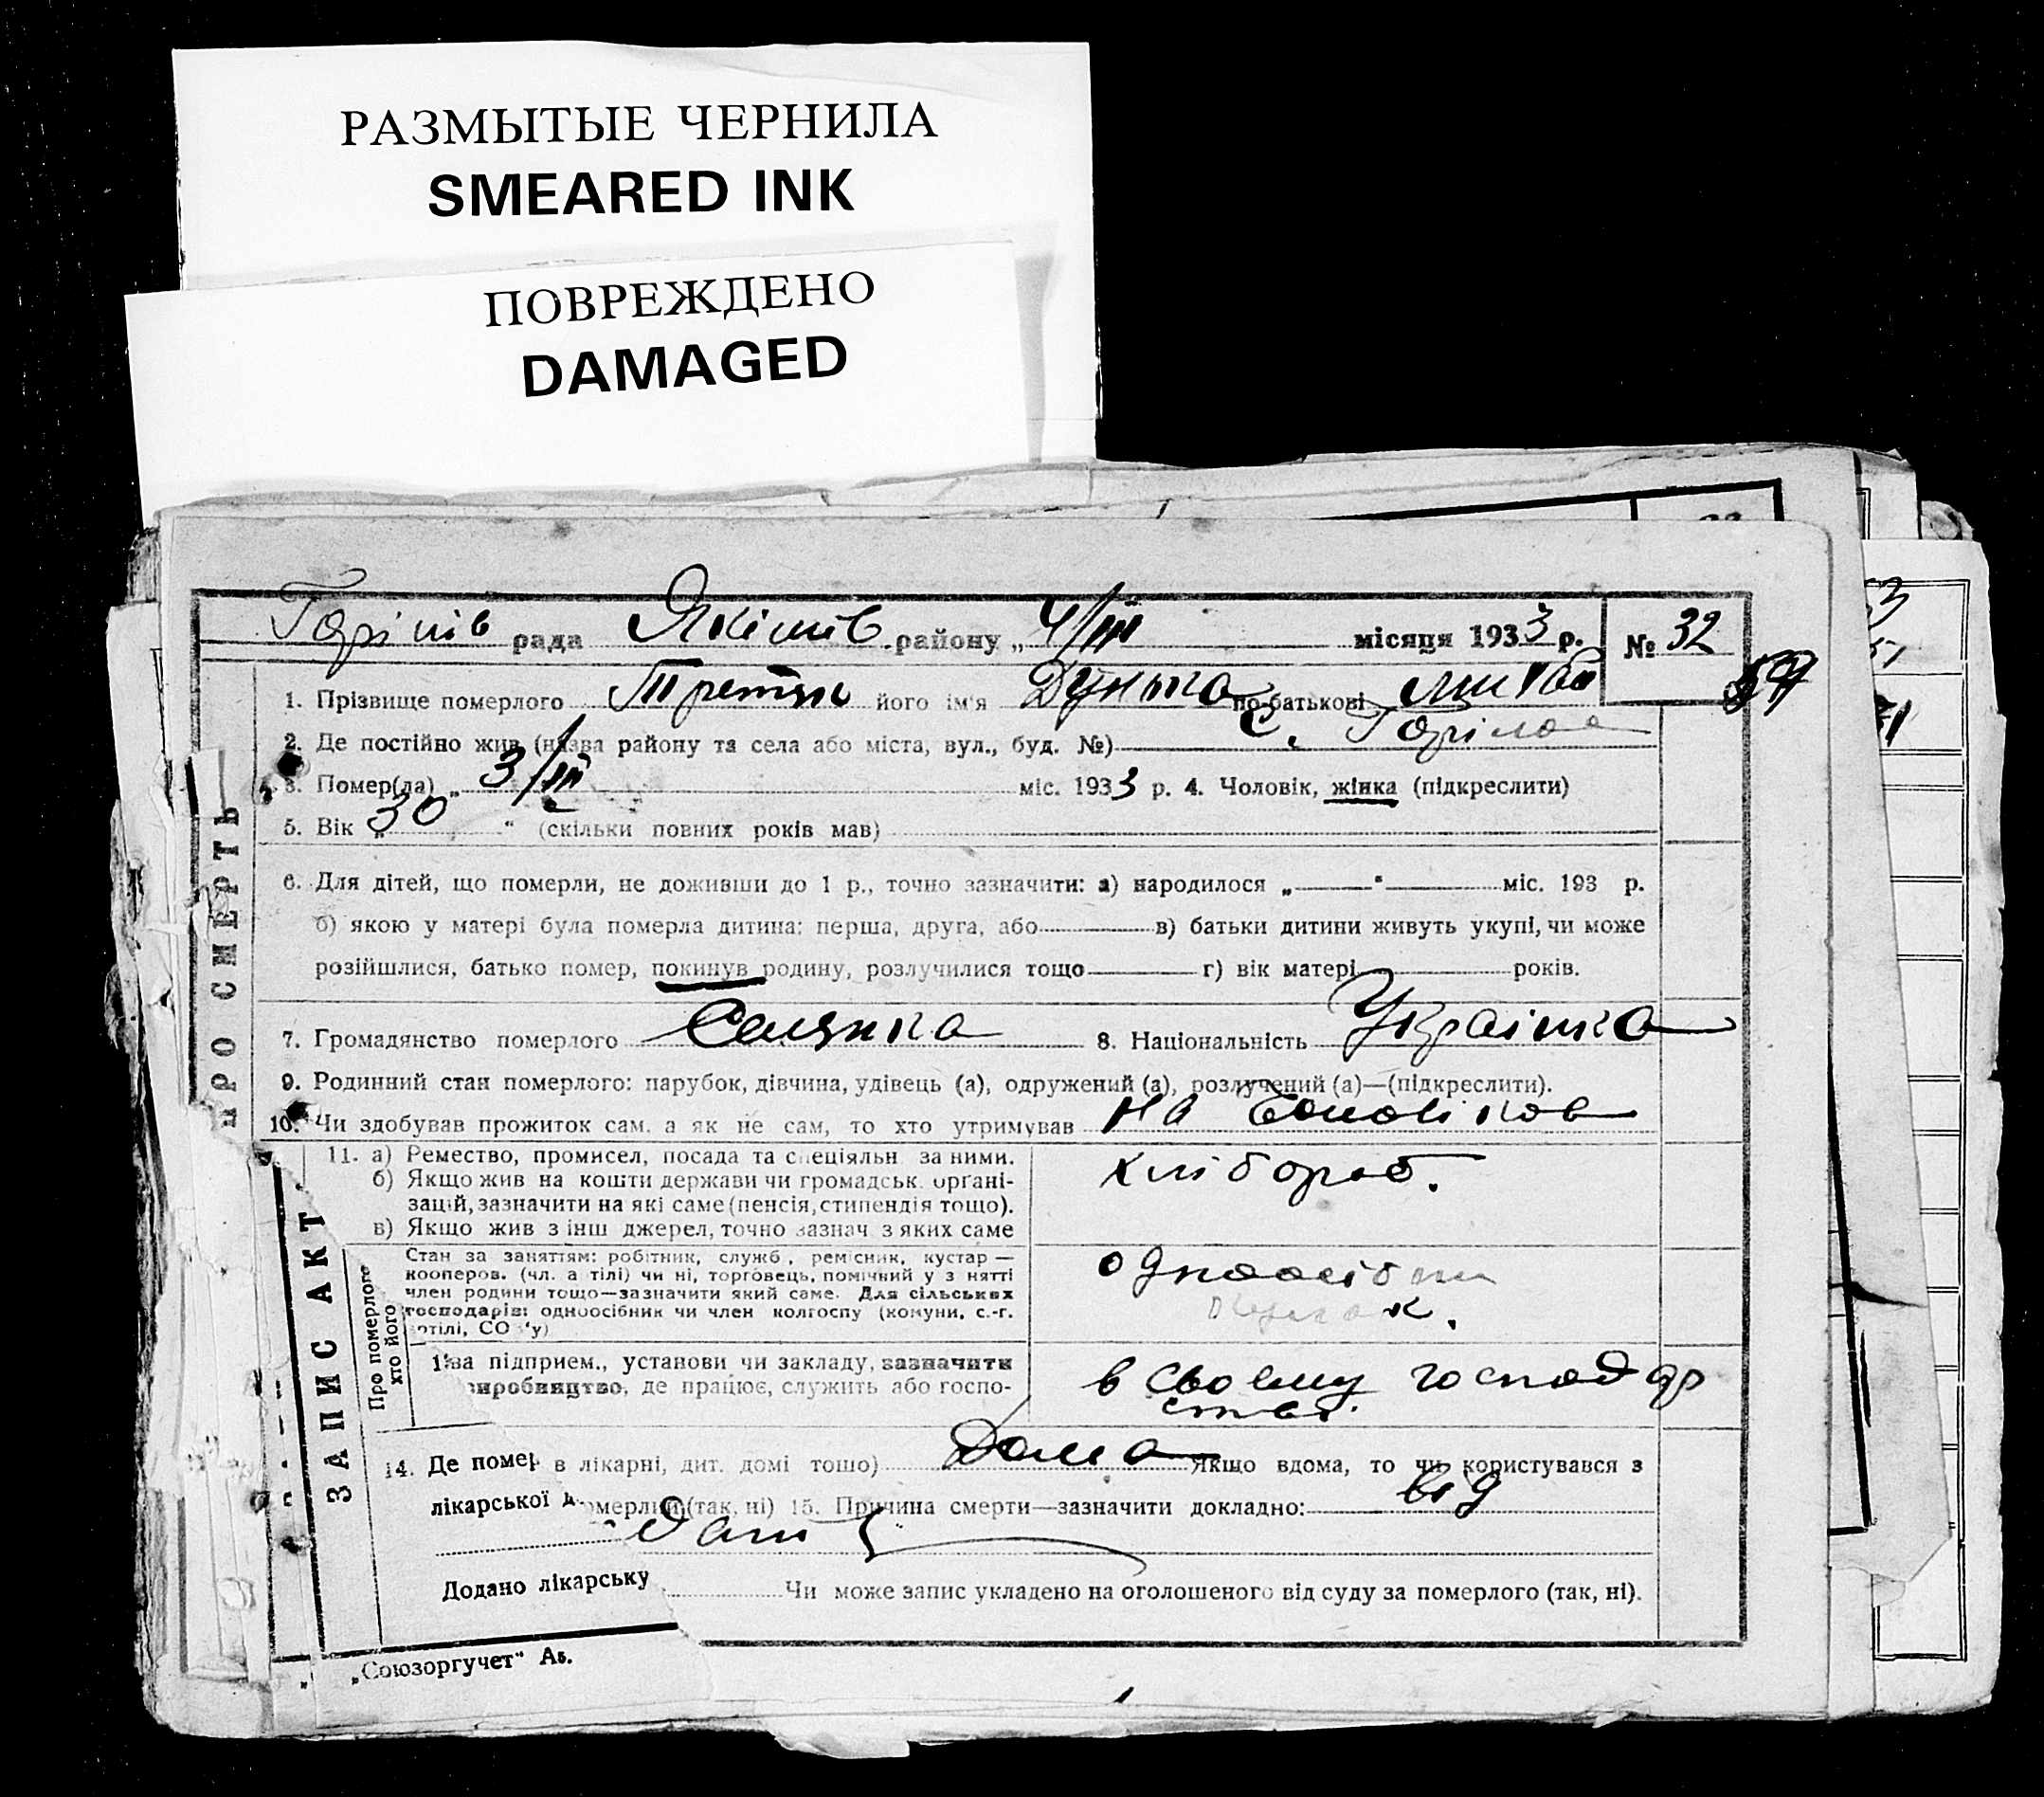 РАЗМЫТЫЕ ЧЕРНИЛА
SMEARED INK
ПОВРЕЖДЕНО
DAMAGED
рада района „ 4/III місяця 1933 р. № 32
1. Прізвище померлого його ім'я Дунька по батькові
2. Де постійно жив (назва району та села або міста, вул., буд. №) с.
3. Помер(ла) „ 3/III міс. 1933 р. 4. Чоловік, жінка (підкреслити)
5. Вік „ 30 “ (скільки повних років мав)
6. Для дітей, що померли, не доживши до 1 р., точно зазначити: а) народилося „ “ міс. 193 р.
б) якою у матері була померла дитина: перша, друга, або в) батьки дитини живуть укупі, чи може
розійшлися, батько помер, покинув родину, розлучилися тощо г) вік матері років.
7. Громадянство померлого Селянка 8. Національність Українка
9. Родинний стан померлого: парубок, дівчина, удівець (а), одружений (а), розлучений (а)—(підкреслити).
10. Чи здобував прожиток сам. а як не сам, то хто утримував на
11. а) Ремество, промисел, посада та спеціяльн за ними. хлібороб.
б) Якщо жив на кошти держави чи громадськ. органі-
зацій, зазначити на які саме (пенсія, стипендія тощо).
в) Якщо жив з інш джерел, точно зазнач з яких саме
Стан за заняттям: робітник, служб, ремісник, кустар — одноосібни
кооперов. (чл. а тілі) чи ні, торговець, помічний у з нятті
член родини тощо—зазначити який саме. Для сільських
господарів: одноосібник чи член колгоспу (комуни, с.-г.
отілі, СО 'у)
ва підприєм., установи чи закладу, зазначити в своему господар
виробництво, де працює, служить або госпо- стві.
14. Де помер в лікарні, дит. домі тошо) Дома Якщо вдома, то чи користувався з
лікарської д. омерлий (так, ні) 15. Причина смерти—зазначити докладно: від
Додано лікарську Чи може запис укладено на оголошеного від суду за померлого (так, ні).
„Союзоргучет“ Аб.
ЗАПИС АКТ
ПРО СМЕРТЬ
Про померлого
хто його